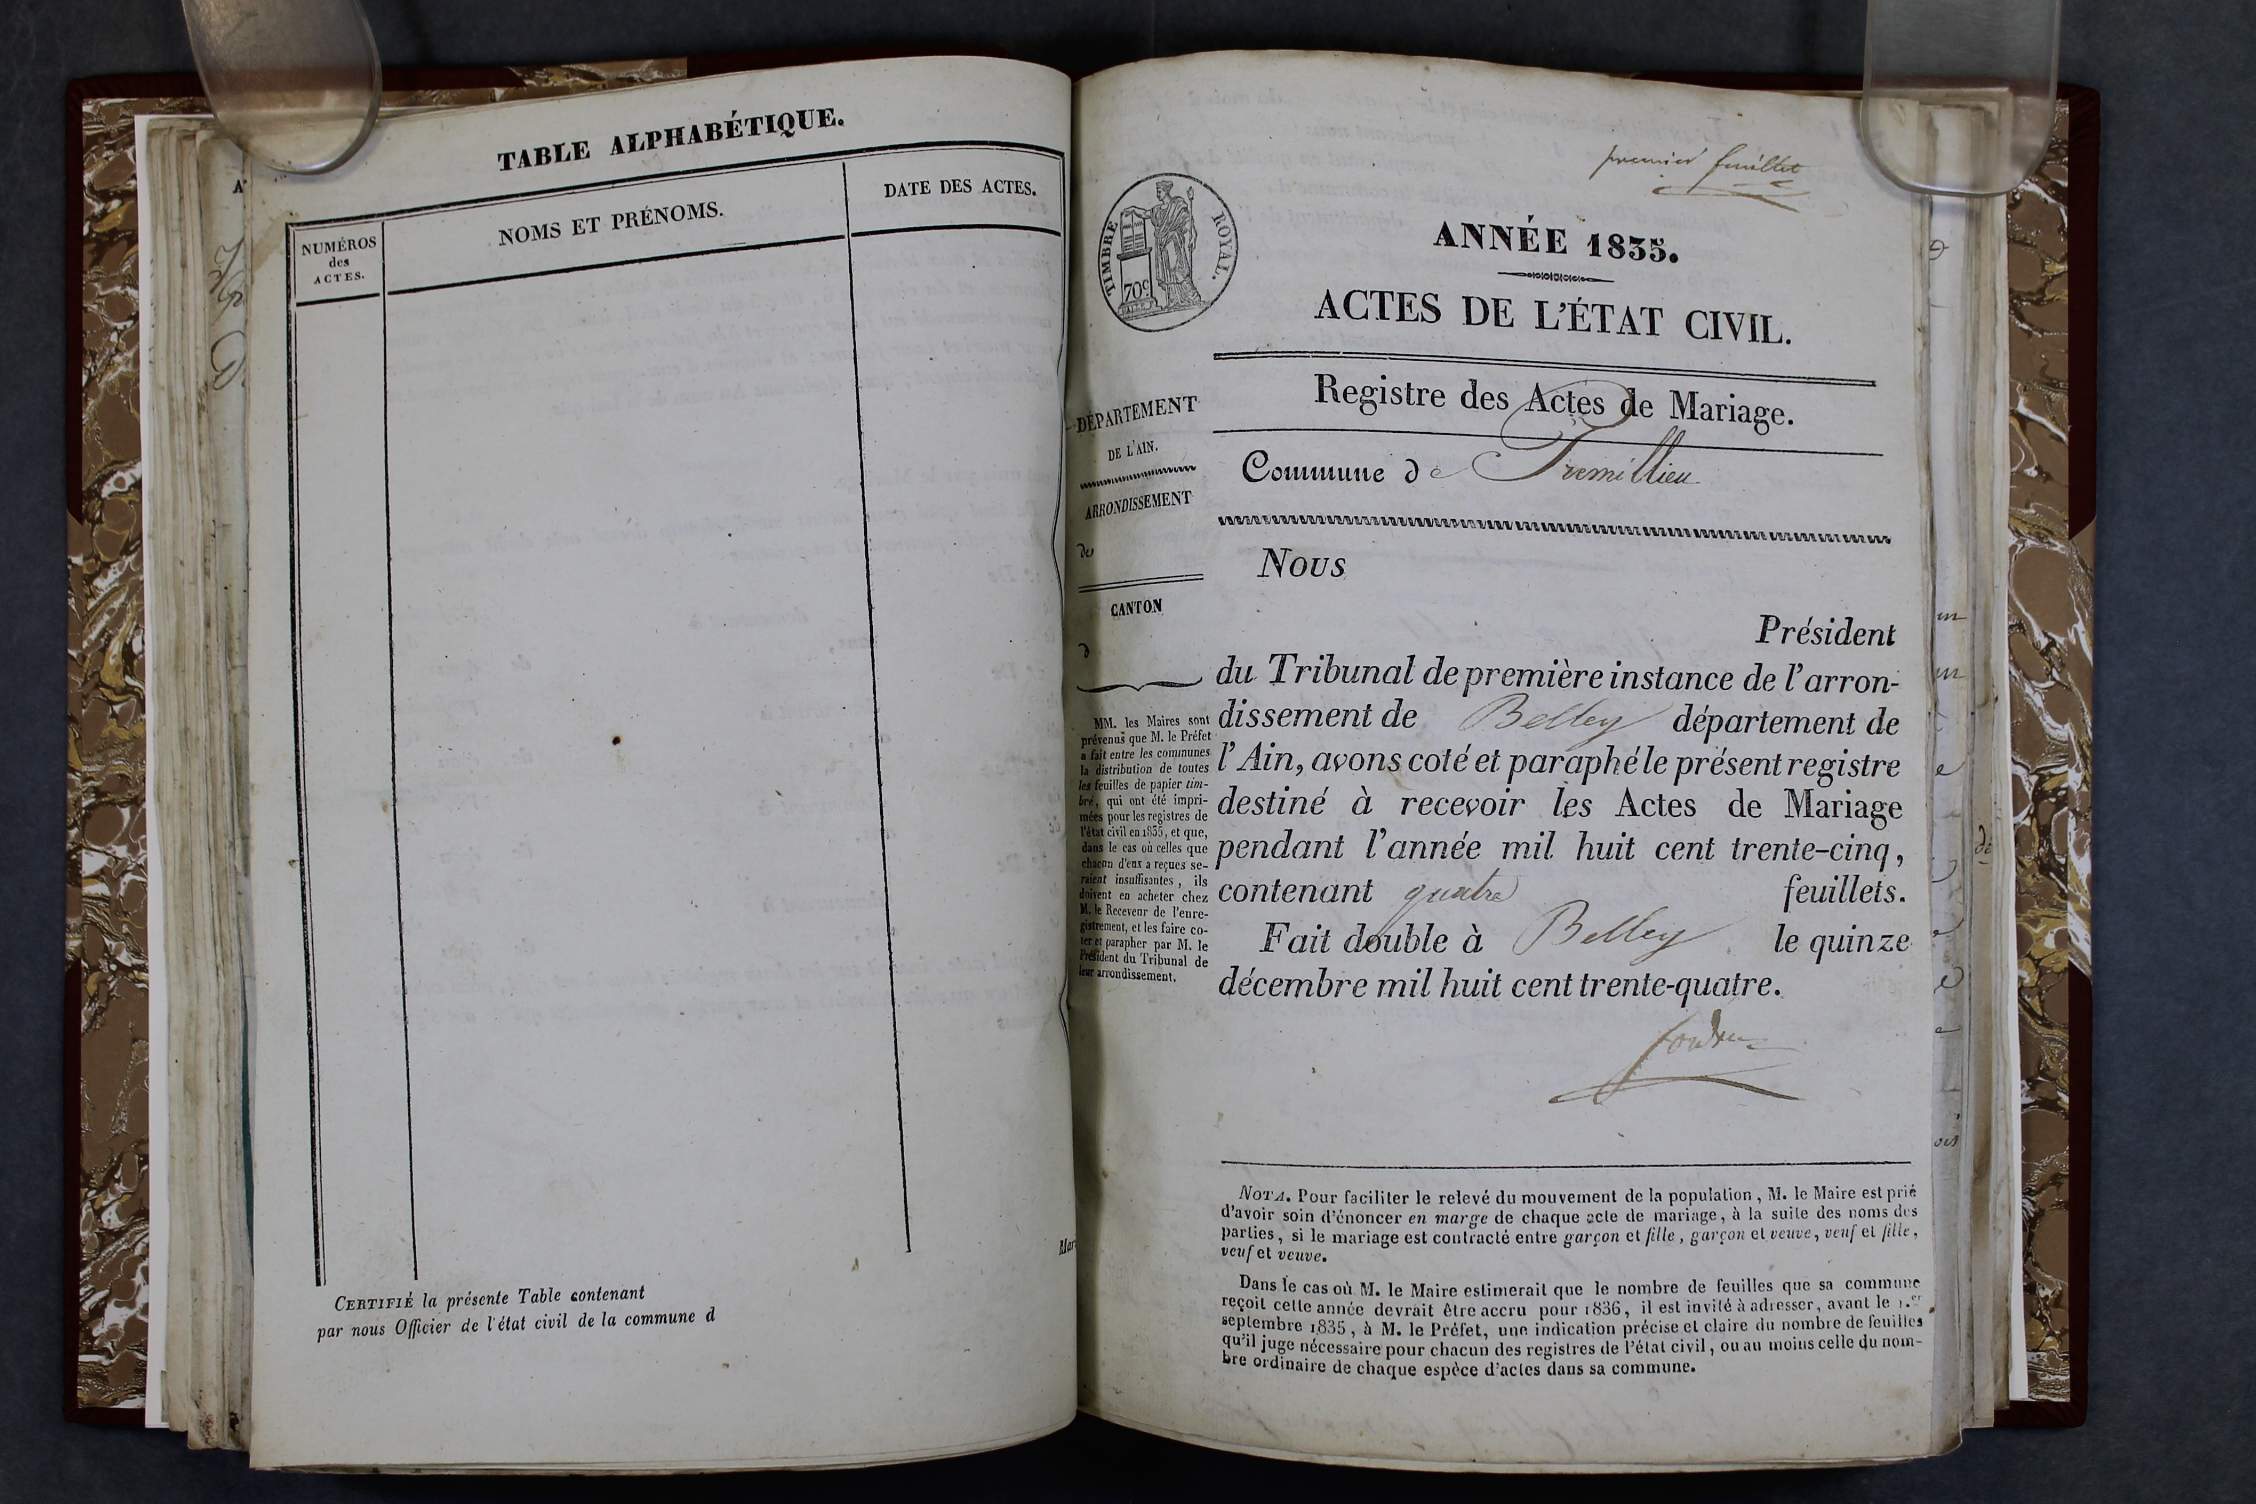 TABLE ALPHABÉTIQUE.
NUMÉROS
des
ACTES.
NOMS ET PRÉNOMS.
DATE DES ACTES.
CERTIFIÉ la présente Table contenant
par nous Officier de l'état civil de la commune d
premier feuillet
TIMBRE ROYAL.
70c
ANNÉE 1835.
ACTES DE L'ÉTAT CIVIL.
Registre des Actes de Mariage.
Commune de Premillieu
DÉPARTEMENT
DE L'AIN.
ARRONDISSEMENT
de
CANTON
d
MM. les Maires sont
prévenus que M. le Préfet
a fait entre les communes
la distribution de toutes
les feuilles de papier tim-
bré, qui ont été impri-
mées pour les registres de
l'état civil en 1835, et que,
dans le cas où celles que
chacun d'eux a reçues se-
raient insuffisantes, ils
doivent en acheter chez
M. le Receveur de l'enre-
gistrement, et les faire co-
ter et parapher par M. le
Président du Tribunal de
leur arrondissement.
Nous
Président
du Tribunal de première instance de l'arron-
dissement de Belley département de
l'Ain, avons coté et paraphé le présent registre
destiné à recevoir les Actes de Mariage
pendant l'année mil huit cent trente-cinq,
contenant quatre feuillets.
Fait double à Belley le quinze
décembre mil huit cent trente-quatre.
NOTA. Pour faciliter le relevé du mouvement de la population, M. le Maire est prié
d'avoir soin d'énoncer en marge de chaque acte de mariage, à la suite des noms des
parties, si le mariage est contracté entre garçon et fille, garçon et veuve, veuf et fille,
veuf et veuve.
Dans le cas où M. le Maire estimerait que le nombre de feuilles que sa commune
reçoit cette année devrait être accru pour 1836, il est invité à adresser, avant le 1.er
septembre 1835, à M. le Préfet, une indication précise et claire du nombre de feuilles
qu'il juge nécessaire pour chacun des registres de l'état civil, ou au moins celle du nom-
bre ordinaire de chaque espèce d'actes dans sa commune.